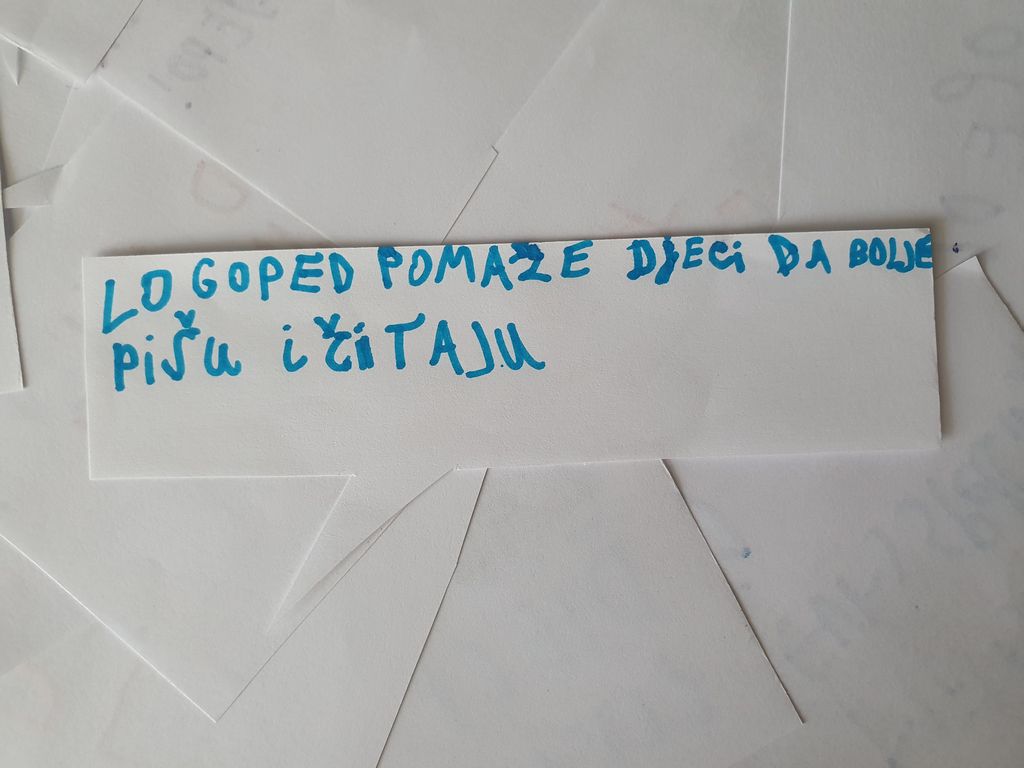 LOGOPED POMAŽE DJECi DA BOLJE
PiŠU i ČiTAJU